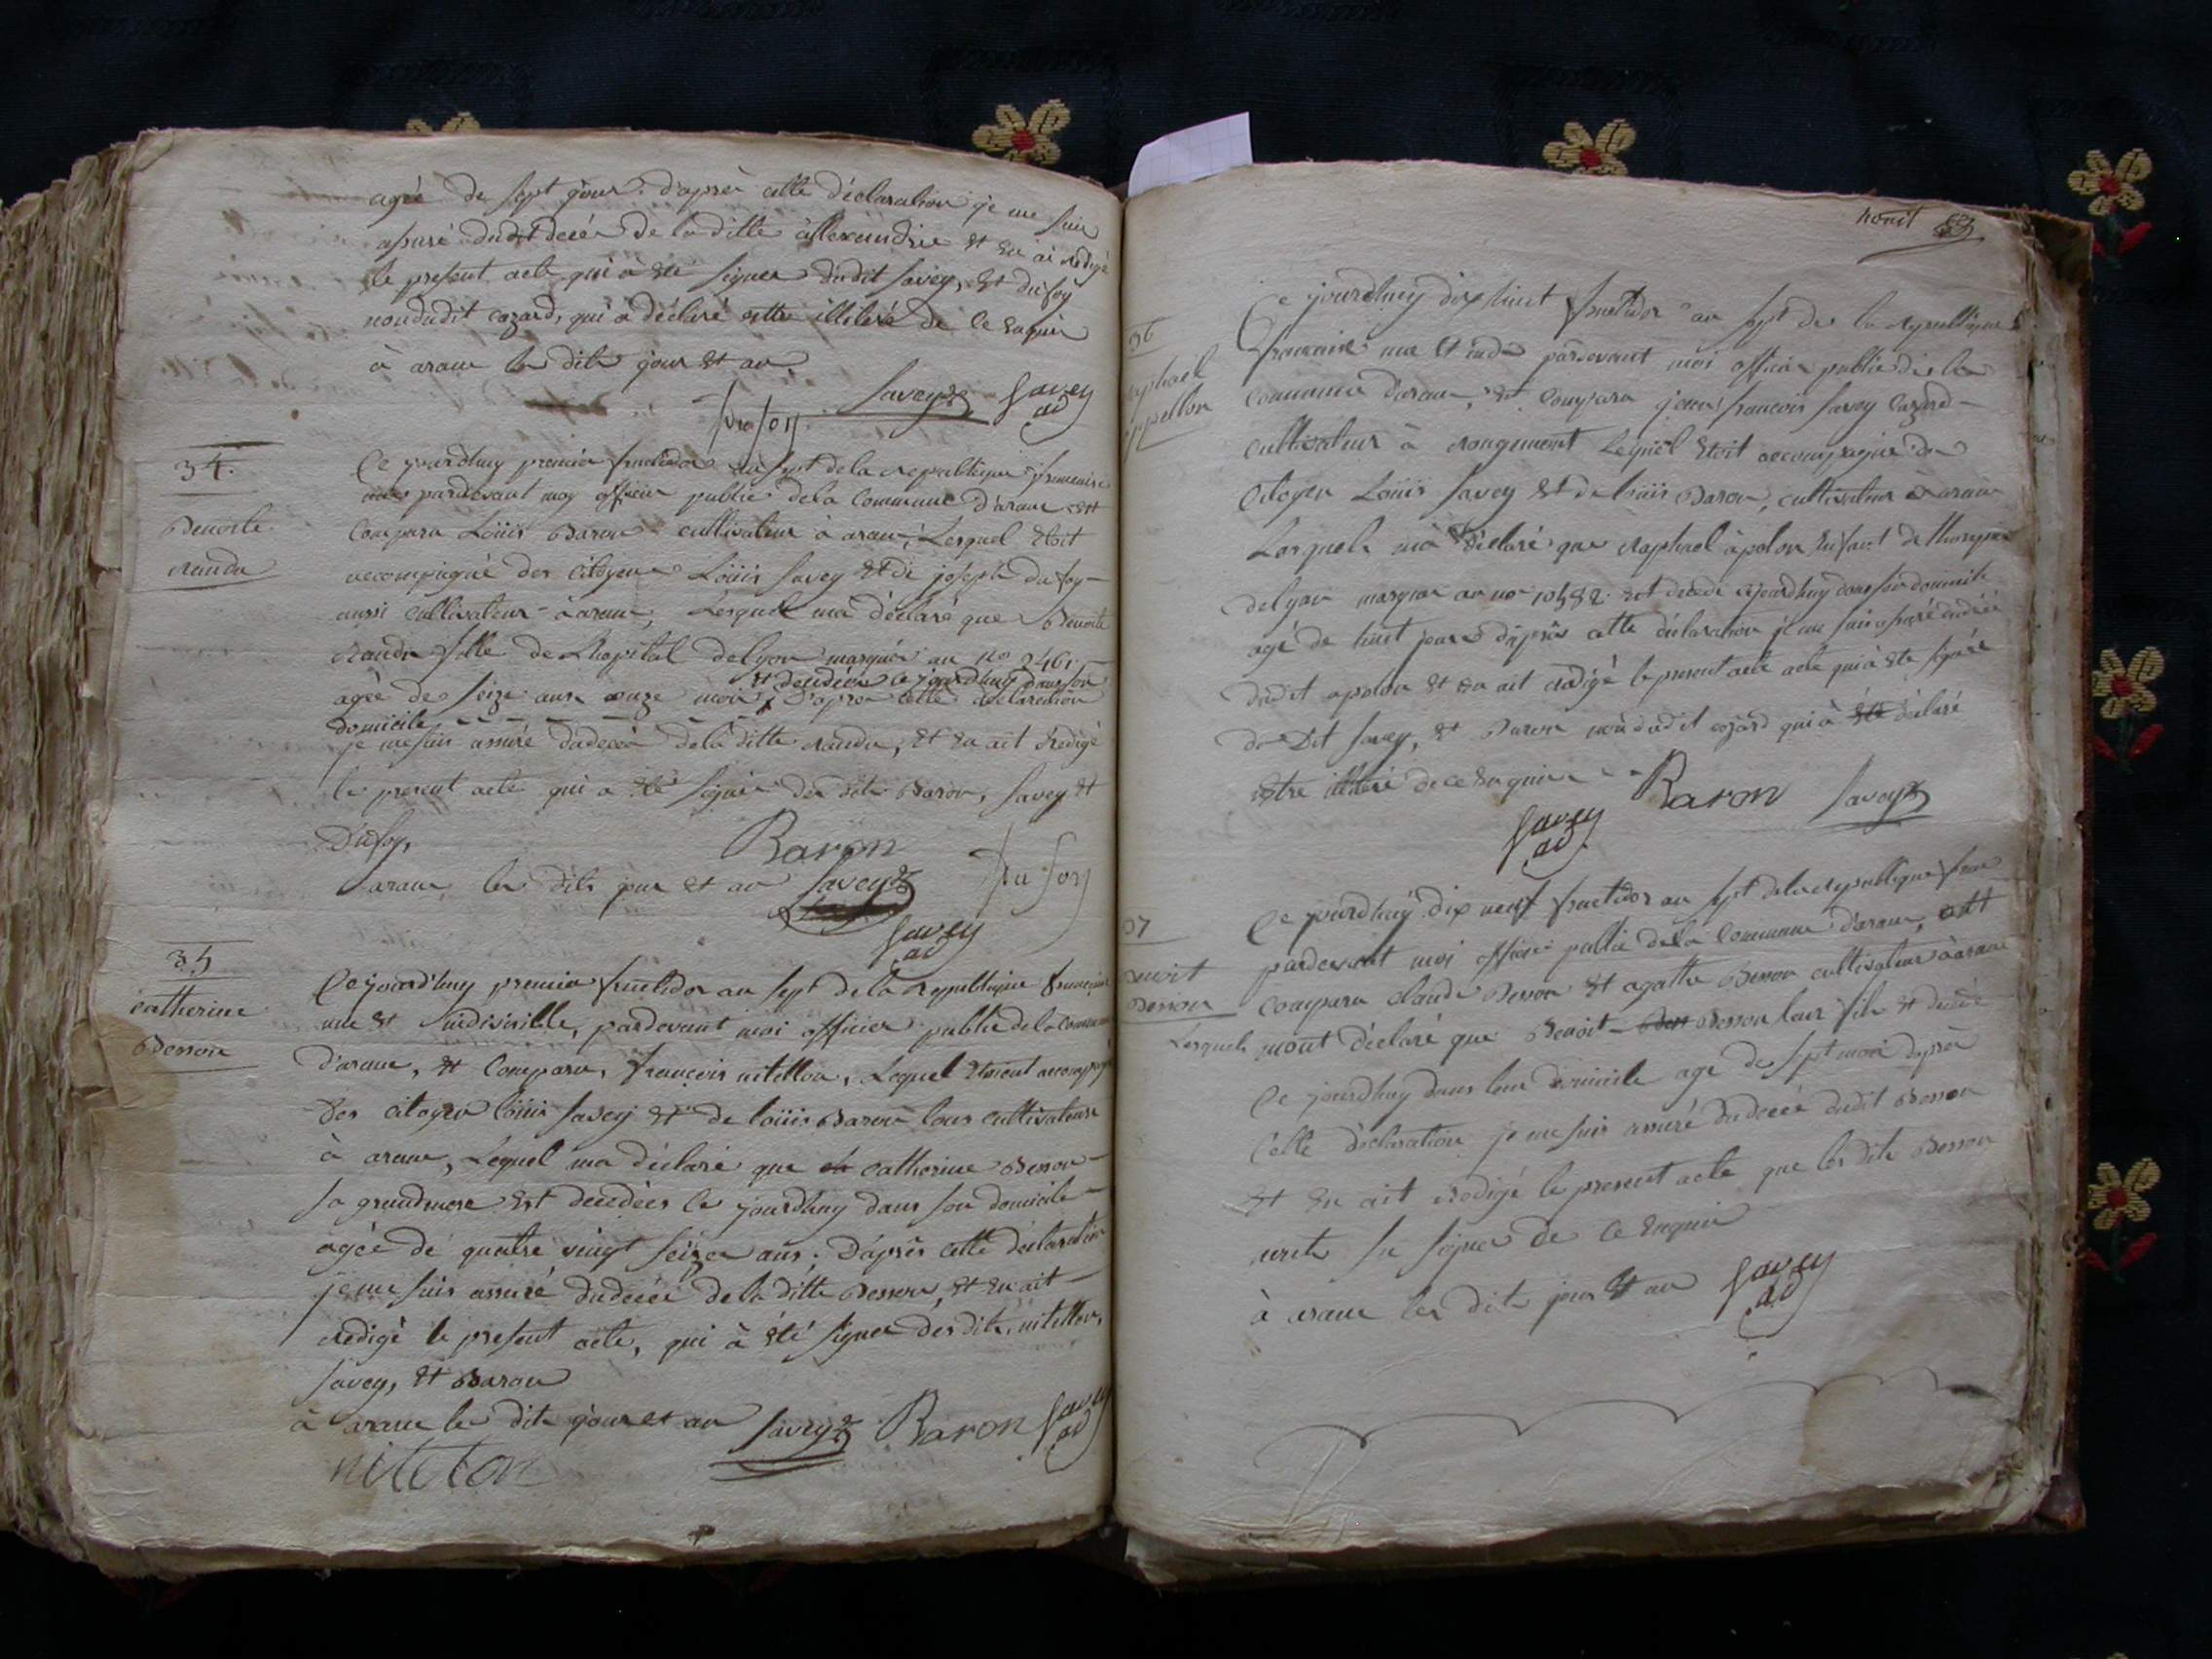 agée de sept jour. d'après cette déclaration je me suis
assuré dudit decés de la ditte allexandrie et en ai redigé
le present acte qui à été signer dudit savey, et dufoy
non dudit cazard, qui à déclaré estre illiteré de ce enquis
à aranc les dits jour et an.
dufoy Savey Savey ad
34.
Benoite
randu
Ce jourdhuy premier fructidor an sept de la republique francaise
pardevant moy officier public de la Commune d'aranc est
Comparu Loüis Baron cultivateur à aranc, Lesquel étoit
accompagné des citoyens Loüis Savey et de joseph dufoy
aussi cultivateur à aranc, Lesquel ma déclaré que Benoite
randu fille de Lhopital de lyon marquée au no 2461
et decedée ce jourdhuy dans son
agée de seize ans onze mois, d'aprés cette declaration
domicile
je me suis assuré du decés de la ditte randu, et en ait redigé
le present acte qui a été signé des dits Baron, savey et
Dufoy,
aranc les dits jour et an
Baron
Savey
dufoy
Savey ad
35
catherine
Besson
Ce jourd'huy premier fructidor an sept de la republique francaise
une et indivisible, pardevant moi officier public de la commune
d'aranc, et Comparu, françois nitellon, Lequel étoient accompagné
des citoyen loüis savey et de loüis Baron tous cultivateurs
à aranc, Lequel ma déclaré que catherine Besson
sa grandmere est decedées ce jourdhuy dans son domicile
agée de quatre vingt seize ans. D'aprés cette déclaration
je me suis assuré du decés de la ditte Besson, et en ait
redigé le present acte, qui à été signer des dits nitellon,
savey, et Baron
à aranc les dits jour et an Savey Baron Savey ad
niteton
huit
36
raphael
appollon
Ce jourdhuy dix huit fructidor an sept de la republique
francaise une et ind pardevant moi officier public de la
Commune d'aranc, est Comparu jean francois savey cazard
cultivateur à rougemont Lequel étoit accompagné du
Citoyen Loüis savey et de loüis Baron, cultivateur à aranc
Lesquels mà déclaré que raphael àpolon enfant de
de lyon marqué au no 10482 est decedé cejourdhuy dans son domicile
agé de huit jours d'aprés cette déclaration je me suis assuré du decés
dudit apolon et en ait redigé le present acte acte qui à été signé
du dit savey, et Baron non dudit cazard qui à été déclaré
estre illiteré de ce enquis
Baron Savey
Savey ad
37
Benoit
Besson
Ce jourdhuy dix neuf fructidor an sept de la republique fran
pardevant moi officier public de la Commune d'aranc, est
Comparu claude Besson et agatte Besson cultivateur à aranc
Lesquels mont déclaré que Benoit Bess Besson leur fils et decedé
Ce jourdhuy dans leur domicile agé de sept mois d'aprés
Cette déclaration je me suis assuré du decés dudit Besson
et en ait redigé le present acte que les dits Besson
nonts su signer de ce enquis
à aranc les dits jour et an Savey ad